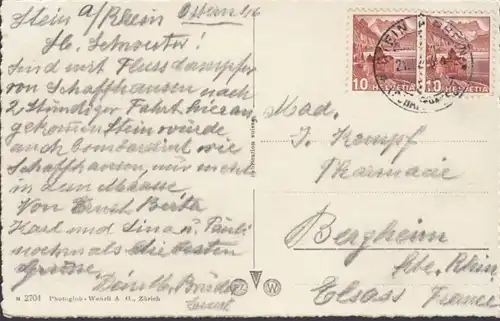 Stein a/Rhein Ostern 46
Lb. Schwester!
Sind mit Flussdampfer
von Schaffhausen nach
2 stündiger Fahrt hier an-
gekommen Stein würde
auch bombardiert wie
Schaffhausen, nur nicht
in dem Masse
Von Ernst Berta
Karl und Lina u. Pauli
nochmals die besten
Grüsse
Dein lb. Bruder
Ernst
10 HELVETIA
10 HELVETIA
STEIN
Mad.
J. Kempf
Pharmacie
Bergheim
Hte. Rhin
Elsass France
M 2704 Photoglob-Wehrli A. G., Zürich
W